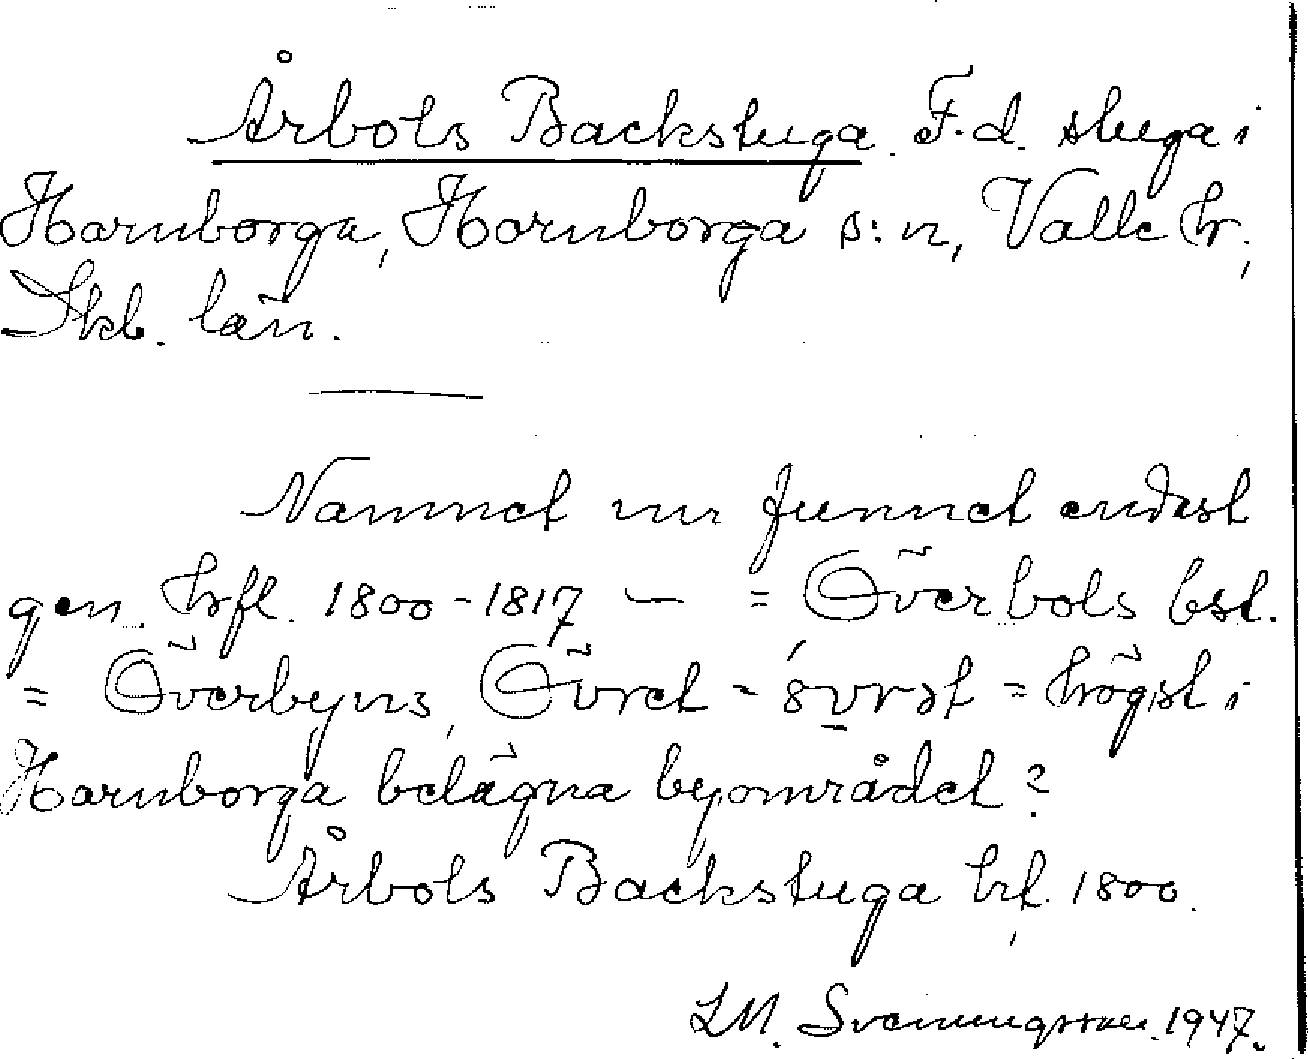 Årbols Backstuga. F.d. stuga i
Hornborga, Hornborga s:n, Valle hr,
Skb. län.
Namnet nu funnet endast
gen. hfl. 1800-1817 — = Överbols bst.
= Överbyns, Övret - = högst i
Hornborga belägna byområdet?
Årbols Backstuga hfl. 1800.
LM. Svenungsson. 1947.